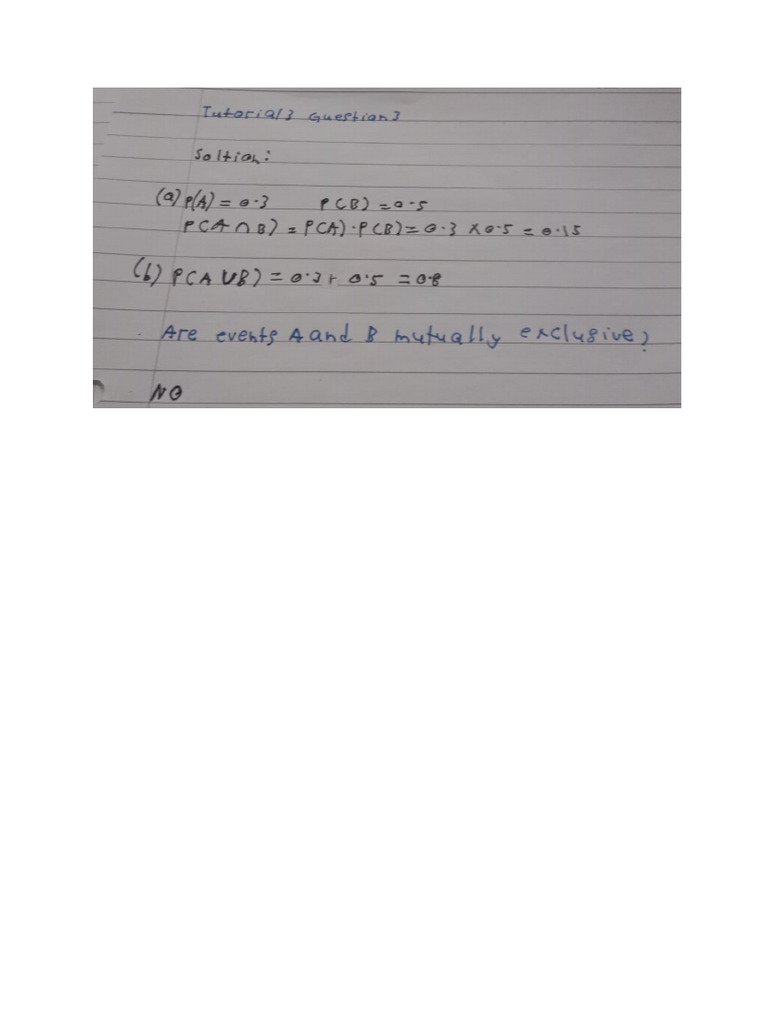 Tutorial 3 Question 3
Soltion:
(a) P(A) = 0.3 P(B) = 0.5
P(A ∩ B) = P(A) · P(B) = 0.3 × 0.5 = 0.15
(b) P(A ∪ B) = 0.3 + 0.5 = 0.8
Are events A and B mutually exclusive?
NO